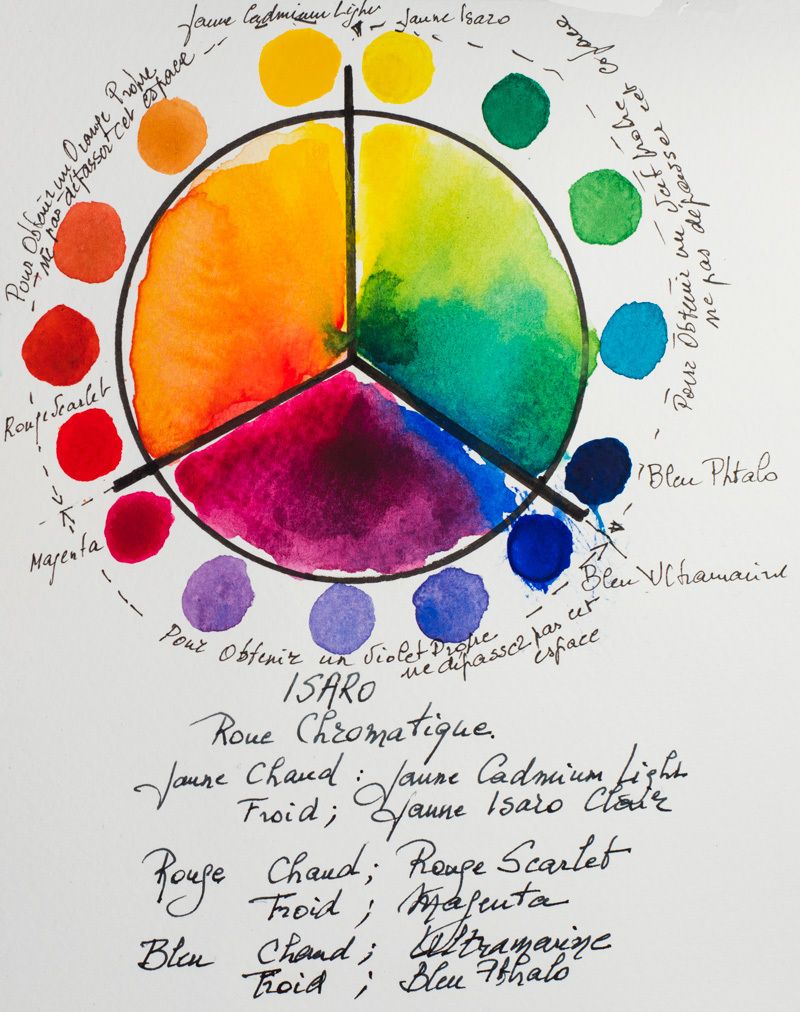 Jaune Cadmium Light
Jaune Isaro
Pour Obtenir un Orange Propre
ne pas dépasser cet espace
Pour Obtenir un Vert Propre
ne pas dépasser cet espace
Rouge Scarlet
Magenta
Bleu Phtalo
Bleu Ultramarine
Pour Obtenir un Violet Propre
ne dépassez pas cet
espace
ISARO
Roue Chromatique.
Jaune Chaud : Jaune Cadmium Light
Froid ; Jaune Isaro Clair
Rouge Chaud ; Rouge Scarlet
Froid ; Magenta
Bleu Chaud ; Ultramarine
Froid ; Bleu Phthalo